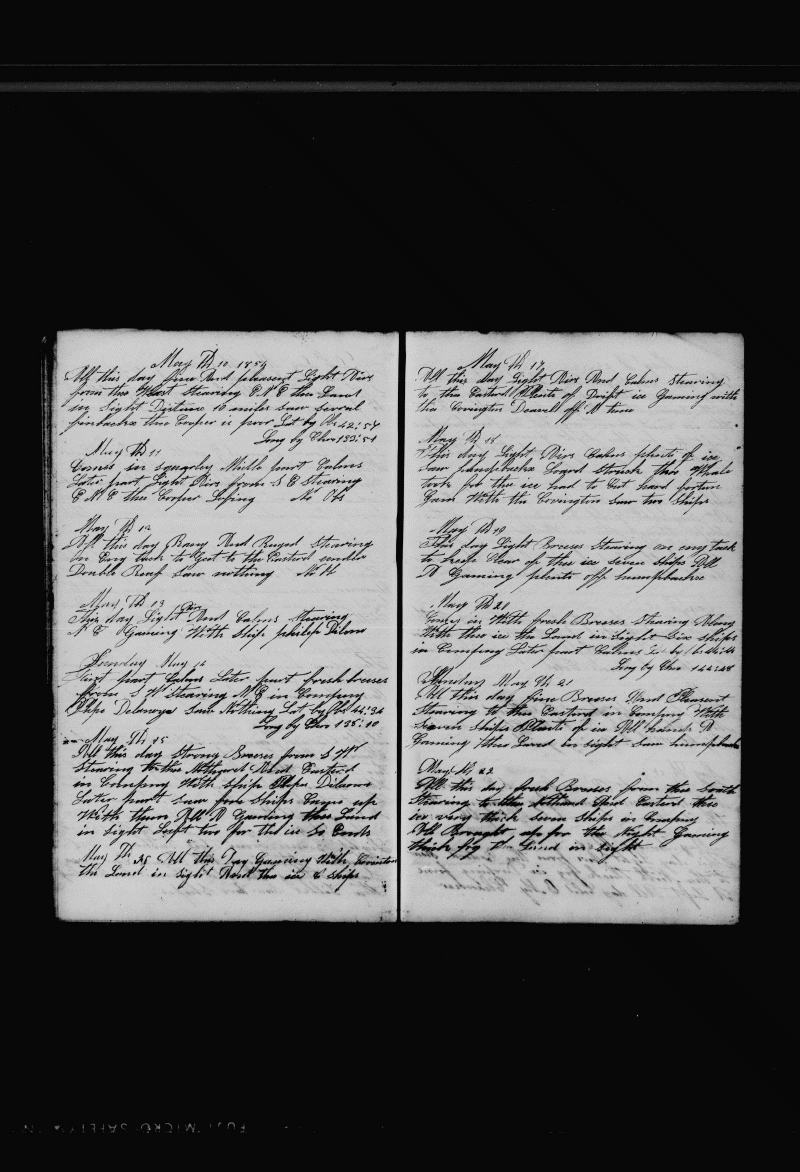 May Th 10 185
All this day fine And pleasent Light Airs
from the West Stearing E N E the Land
in Sight Distance 10 miles saw several
finbacks the Cooper is poor Lat by Ob 42:54
Long by Chro 133:51
May Th 11
Comes in Squarly Midle part Calms
Later part Light Airs from S E Stearing
E N E the Cooper No Ob
May Th 12
All this day Rany And Ruged Stearing
on Evry tack to Geat to the Eastord under
Double Reaf Saw nothing
May Th 13
This day Light Airs And Calms Stearing
N E Gaming With Ship philip Delano
Sunday May 14
First part Calms Later part fresh breses
from S W Stearing N E in Company
Ship Delanoya Saw Nothing Lat by Ob 44:34
Long by Chro 138:10
May Th 15
All this day Strong Breses from S W
Stearing to the Northward And Eastord
in Company With Ship Delano
Later part Saw five Ships Came up
With them All A Gaming the Land
in Sight Last two for the ice So Ends
May Th 16 All this Day Gaming With Covington
the Land in Sight And the ice 6 Ships
May Th 17
All this day Light Airs And Calms Stearing
to the Eastord Plenta of Drift ice Gaming with
the Covington Dowell off M time
May Th 18
This day Light Airs Calms plenta of ice
Saw humpbacks Loard Struck the Whale
took for the ice had to Cut hard fortune
Gam With the Covington Saw two Ships
May Th 19
This day Light Breses Stearing on eny tack
to keep Clear of the ice Seven Ships All
A Gaming plenta off humpbacks
May Th 21
Comes in With fresh Breses Stearing Along
With the ice the Land in Sight Six Ships
in Company Later part Calms
Long by Chro 142:48
Sunday May Th 21
All this day fine Breses And Pleasent
Stearing to the Eastord in Compny With
Seaven Ships Plenta of ice All hands A
Gaming the Land in Sight Saw humpbacks
May th 22
All this day fresh Breses from the South
Stearing to the And Eastord the
ice very thick Seven Ships in Company
All Brought up for the Night Gaming
thick fog the Land in Sight